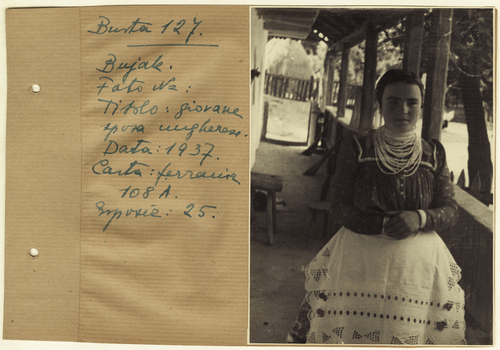 Busta 127.
Bujak.
Foto No:
Titolo: giovane
sposa ungherese.
Data: 1937.
Carta: ferrania
108 A.
Esposiz: 25.